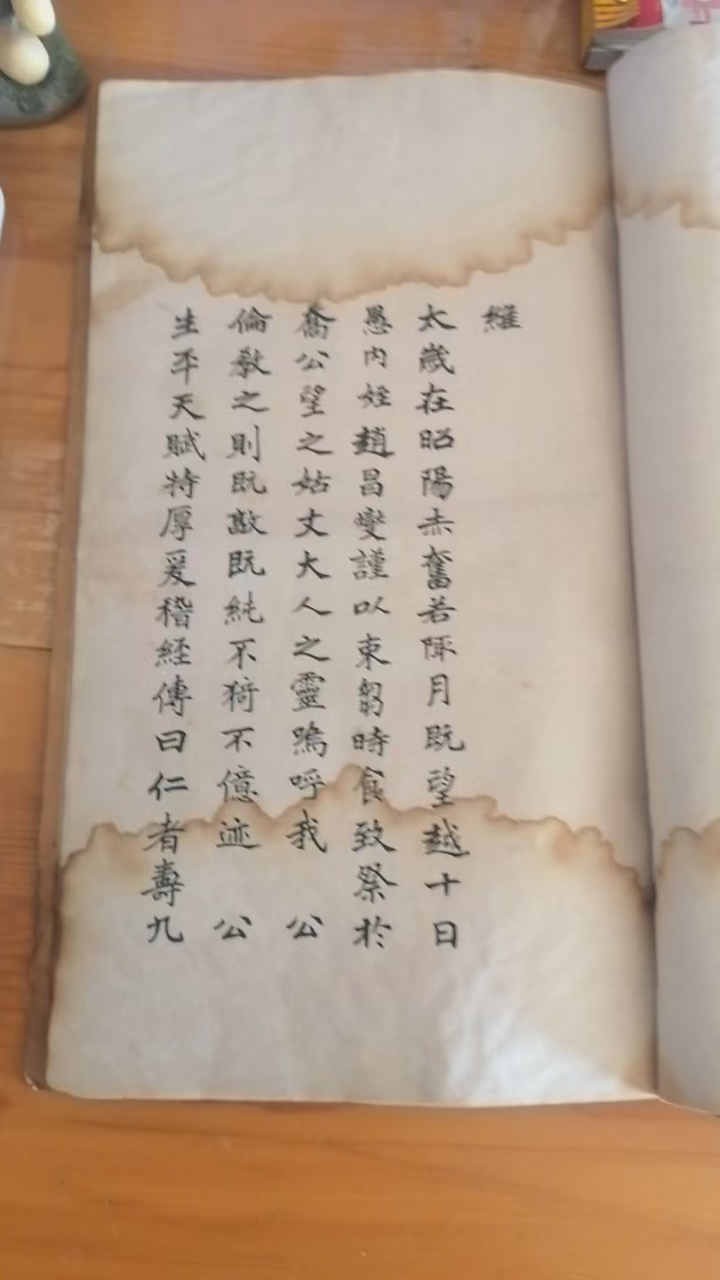 維
太歲在昭陽赤奮若陬月既望越十日
愚内姪趙昌燮謹以束芻時食致祭於
喬公望之姑丈大人之靈嗚呼我 公
倫敎之則既敦既純不猗不億迹 公
生平天賦特厚爰稽經傳曰仁者壽九